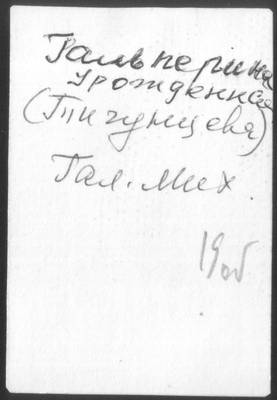 Гальперина
урожденная
(Тигунцева)
Гал. Мих.